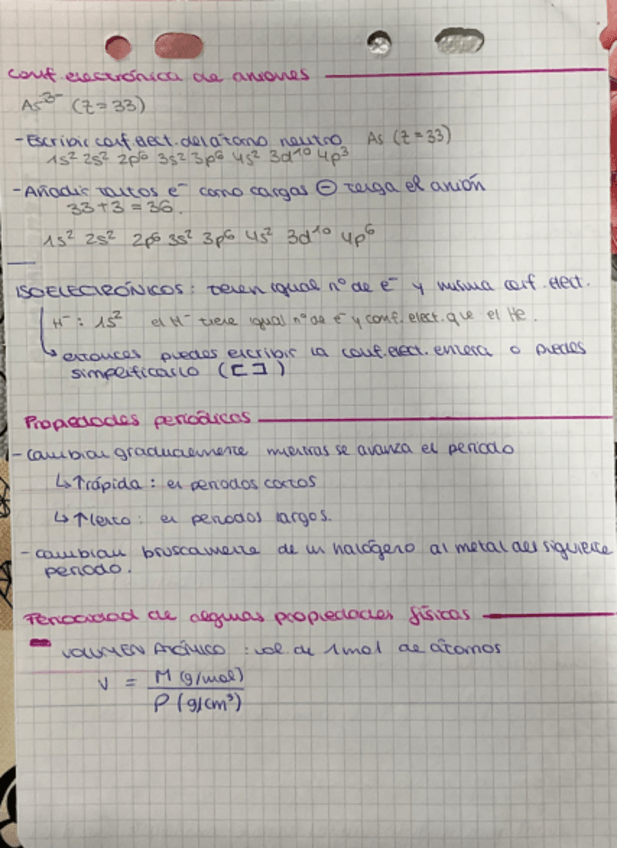 conf. electrónica de aniones
As³⁻ (Z=33)
-Escribir conf. elect. del átomo neutro As (Z=33)
1s² 2s² 2p⁶ 3s² 3p⁶ 4s² 3d¹⁰ 4p³
-Añadir tantos e⁻ como cargas ⊖ tenga el anión
33+3=36.
1s² 2s² 2p⁶ 3s² 3p⁶ 4s² 3d¹⁰ 4p⁶
ISOELECTRÓNICOS: tienen igual nº de e⁻ y misma conf. elect.
H⁻: 1s² el H⁻ tiene igual nº de e⁻ y conf. elect. que el He.
↳ entonces puedes escribir la conf. elect. entera o puedes
simplificarlo ([ ])
Propiedades periódicas
-cambian gradualmente mientras se avanza el periodo
↳↑rápida: en periodos cortos
↳↑lento: en periodos largos.
-cambian bruscamente de un halógeno al metal del siguiente
periodo.
Periocidad de algunas propiedades físicas
VOLUMEN ATÓMICO: vol. de 1mol de átomos
V = M (g/mol)
P (g/cm³)